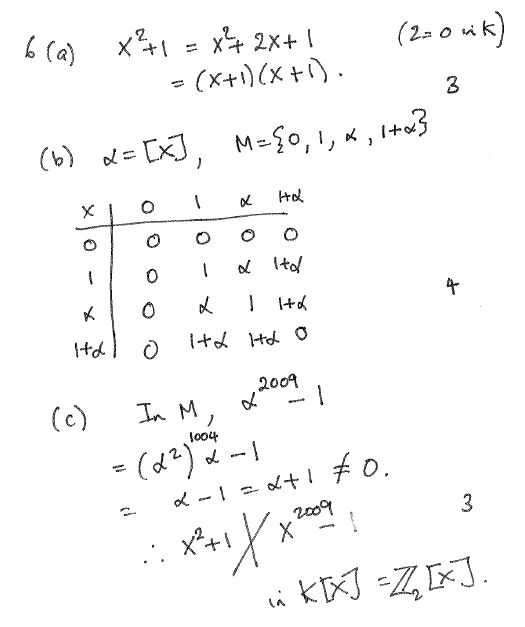 6 (a) x²+1 = x²+ 2x+1 (2=0 in K)
= (x+1)(x+1).
3
(b) α=[x], M={0, 1, α, 1+α}
× | 0 1 α 1+α
0 | 0 0 0 0
1 | 0 1 α 1+α
α | 0 α 1 1+α
4
1+α | 0 1+α 1+α 0
(c) In M, α²⁰⁰⁹ - 1
= (α²)¹⁰⁰⁴ α - 1
= α - 1 = α+1 ≠ 0.
∴ x²+1 ∤ x²⁰⁰⁹ - 1
3
in K[x] = ℤ₂[x].